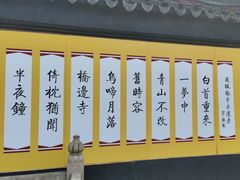 過楓橋寺示遷老
白首重來
一夢中
青山不改
舊時容
烏啼月落
橋邊寺
倚枕猶聞
半夜鐘